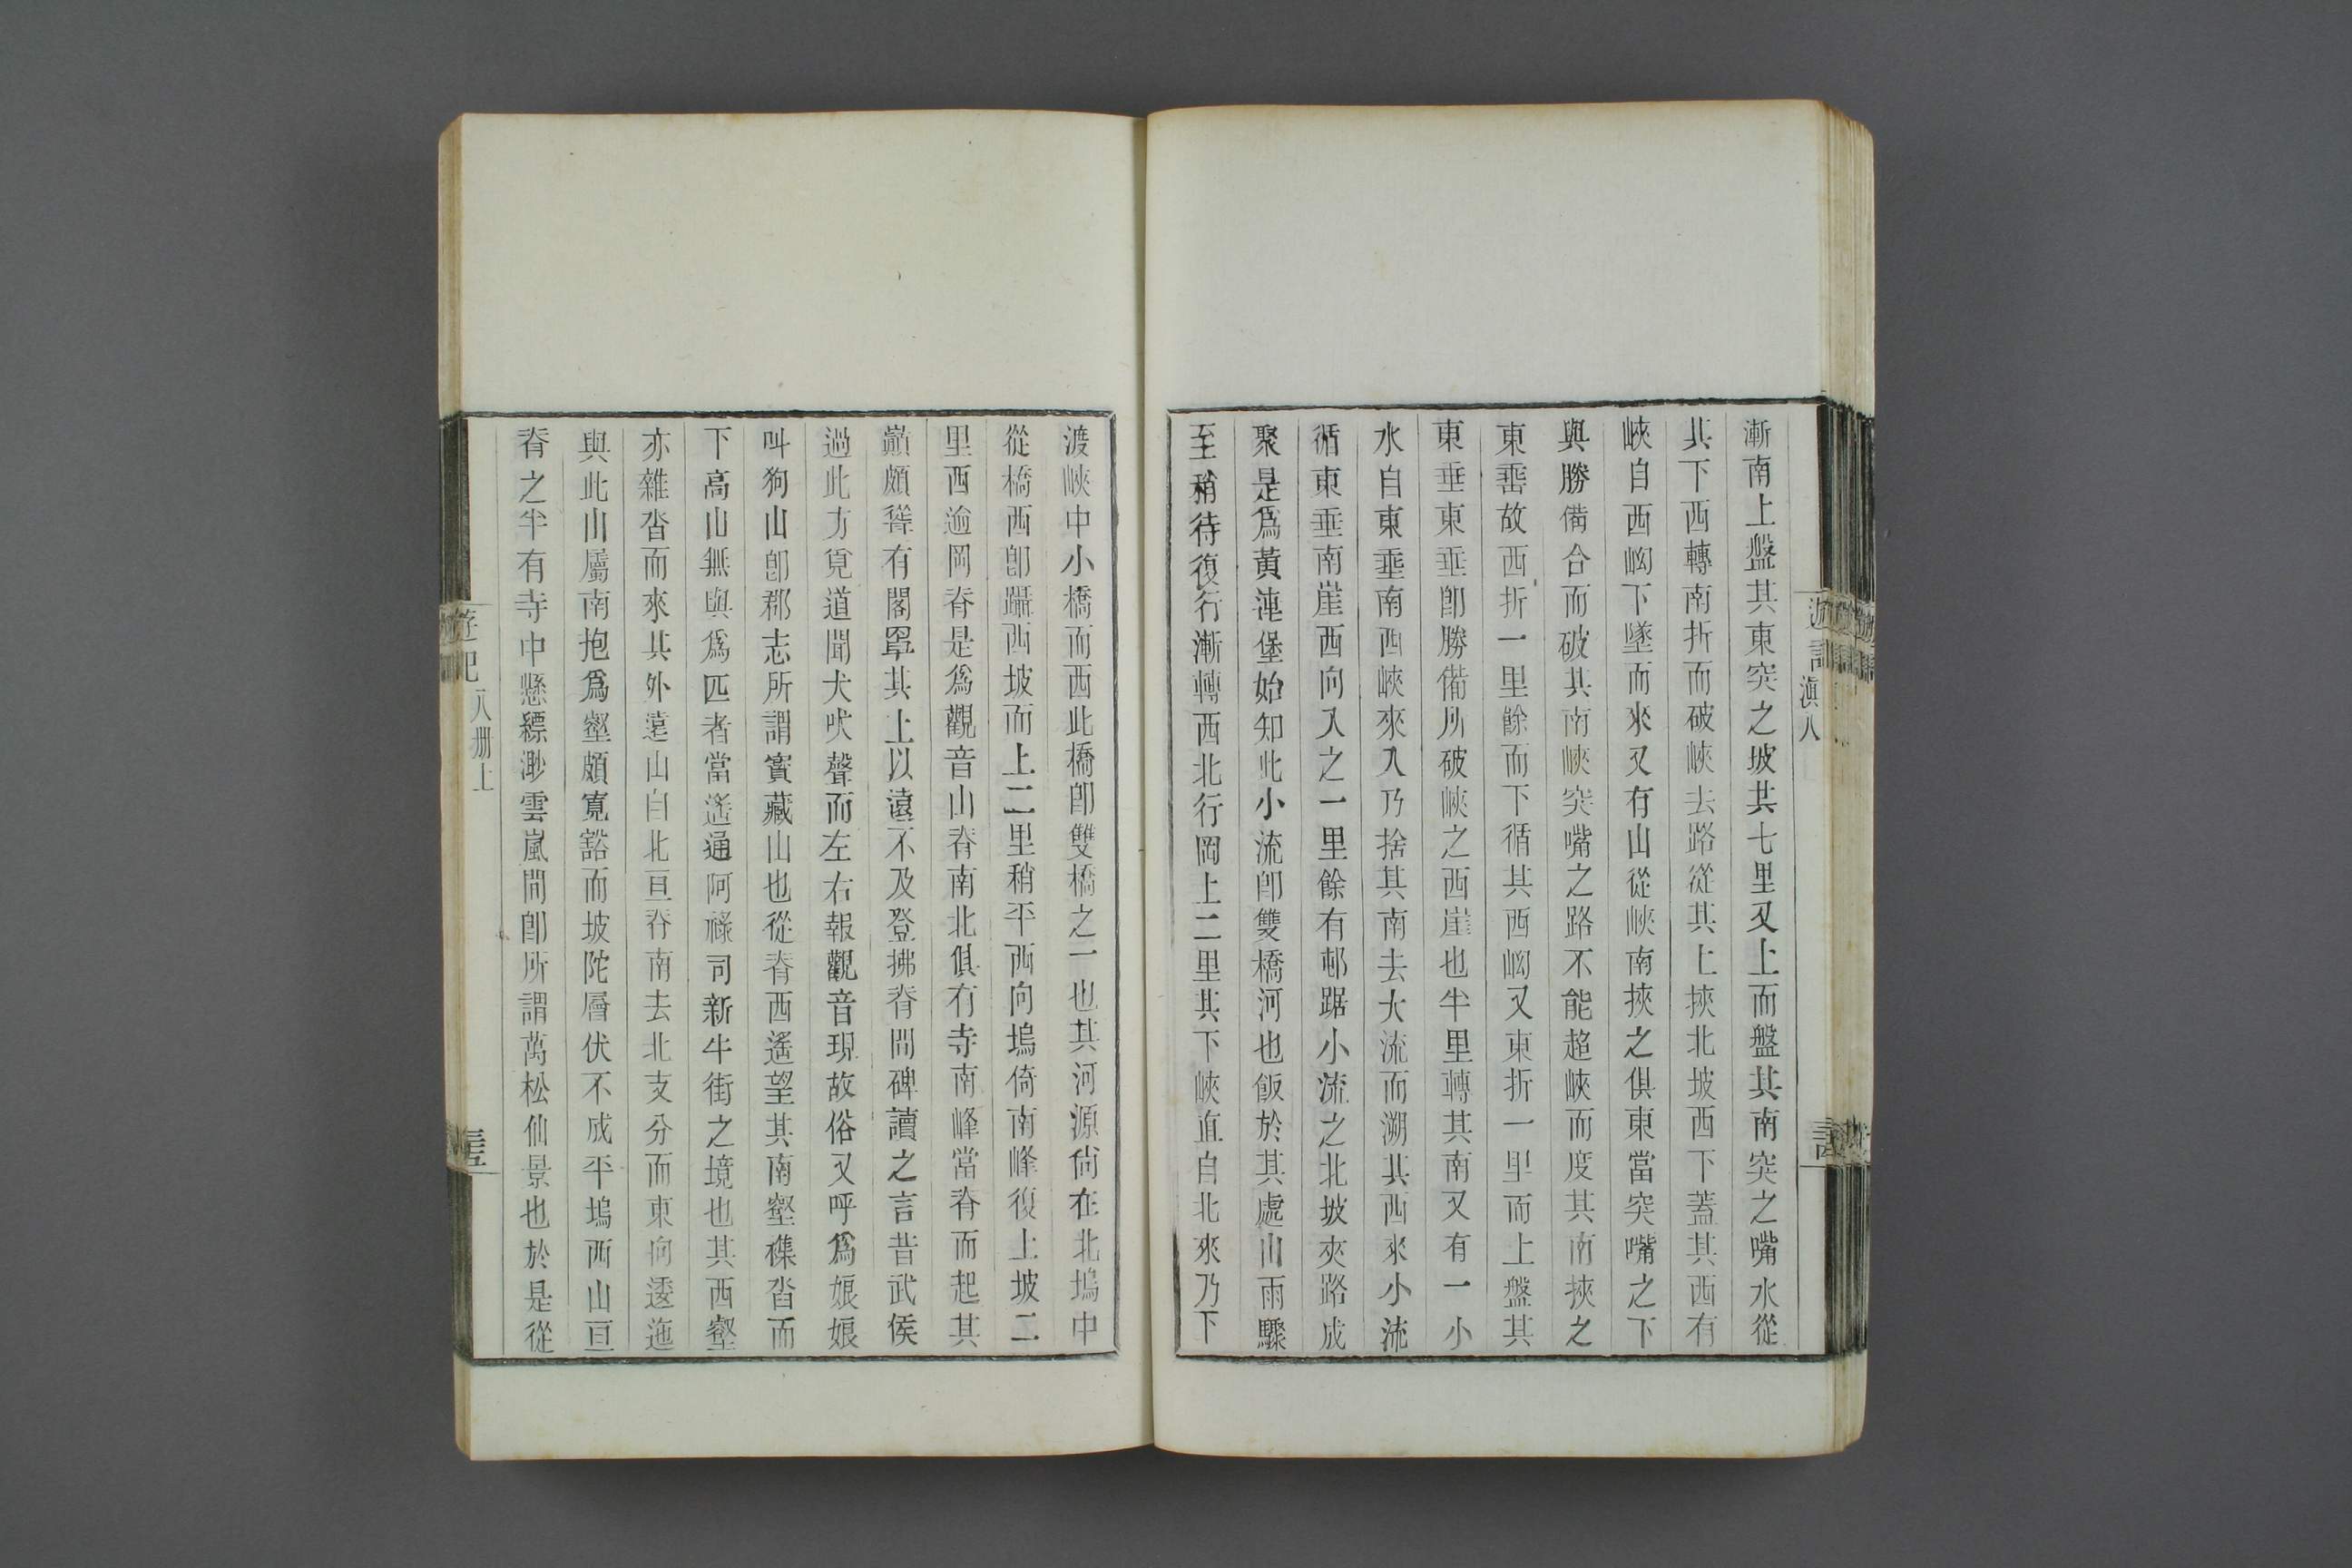 遊記
滇八
漸南上盤其東突之坡共七里又上而盤其南突之嘴水從
其下西轉南折而破峽去路從其上挾北坡西下蓋其西有
峽自西㘭下墜而來又有山從峽南挾之俱東當突嘴之下
與勝備合而破其南峽突嘴之路不能超峽而度其南挾之
東垂故西折一里餘而下循其西㘭又東折一里而上盤其
東垂東垂卽勝備所破峽之西崖也半里轉其南又有一小
水自東垂南西峽來入乃捨其南去大流而溯其西來小流
循東垂南崖西向入之一里餘有邨踞小流之北坡夾路成
聚是爲黃連堡始知此小流卽雙橋河也飯於其處山雨驟
至稍待復行漸轉西北行岡上二里其下峽直自北來乃下
渡峽中小橋而西此橋卽雙橋之一也其河源尙在北塢中
從橋西卽躡西坡而上二里稍平西向塢倚南峰復上坡二
里西逾岡脊是爲觀音山脊南北俱有寺南峰當脊而起其
巓頗聳有閣罩其上以遠不及登拂脊間碑讀之言昔武侯
過此方覓道聞犬吠聲而左右報觀音現故俗又呼爲娘娘
叫狗山卽郡志所謂寶藏山也從脊西遙望其南壑襍沓而
下高山無與爲匹者當遙通阿祿司新牛街之境也其西壑
亦雜沓而來其外遠山自北亘脊南去北支分而東向逶迤
與此山屬南抱爲壑頗寬豁而坡陀層伏不成平塢西山亘
脊之半有寺中懸縹渺雲嵐間卽所謂萬松仙景也於是從
遊記
八册上